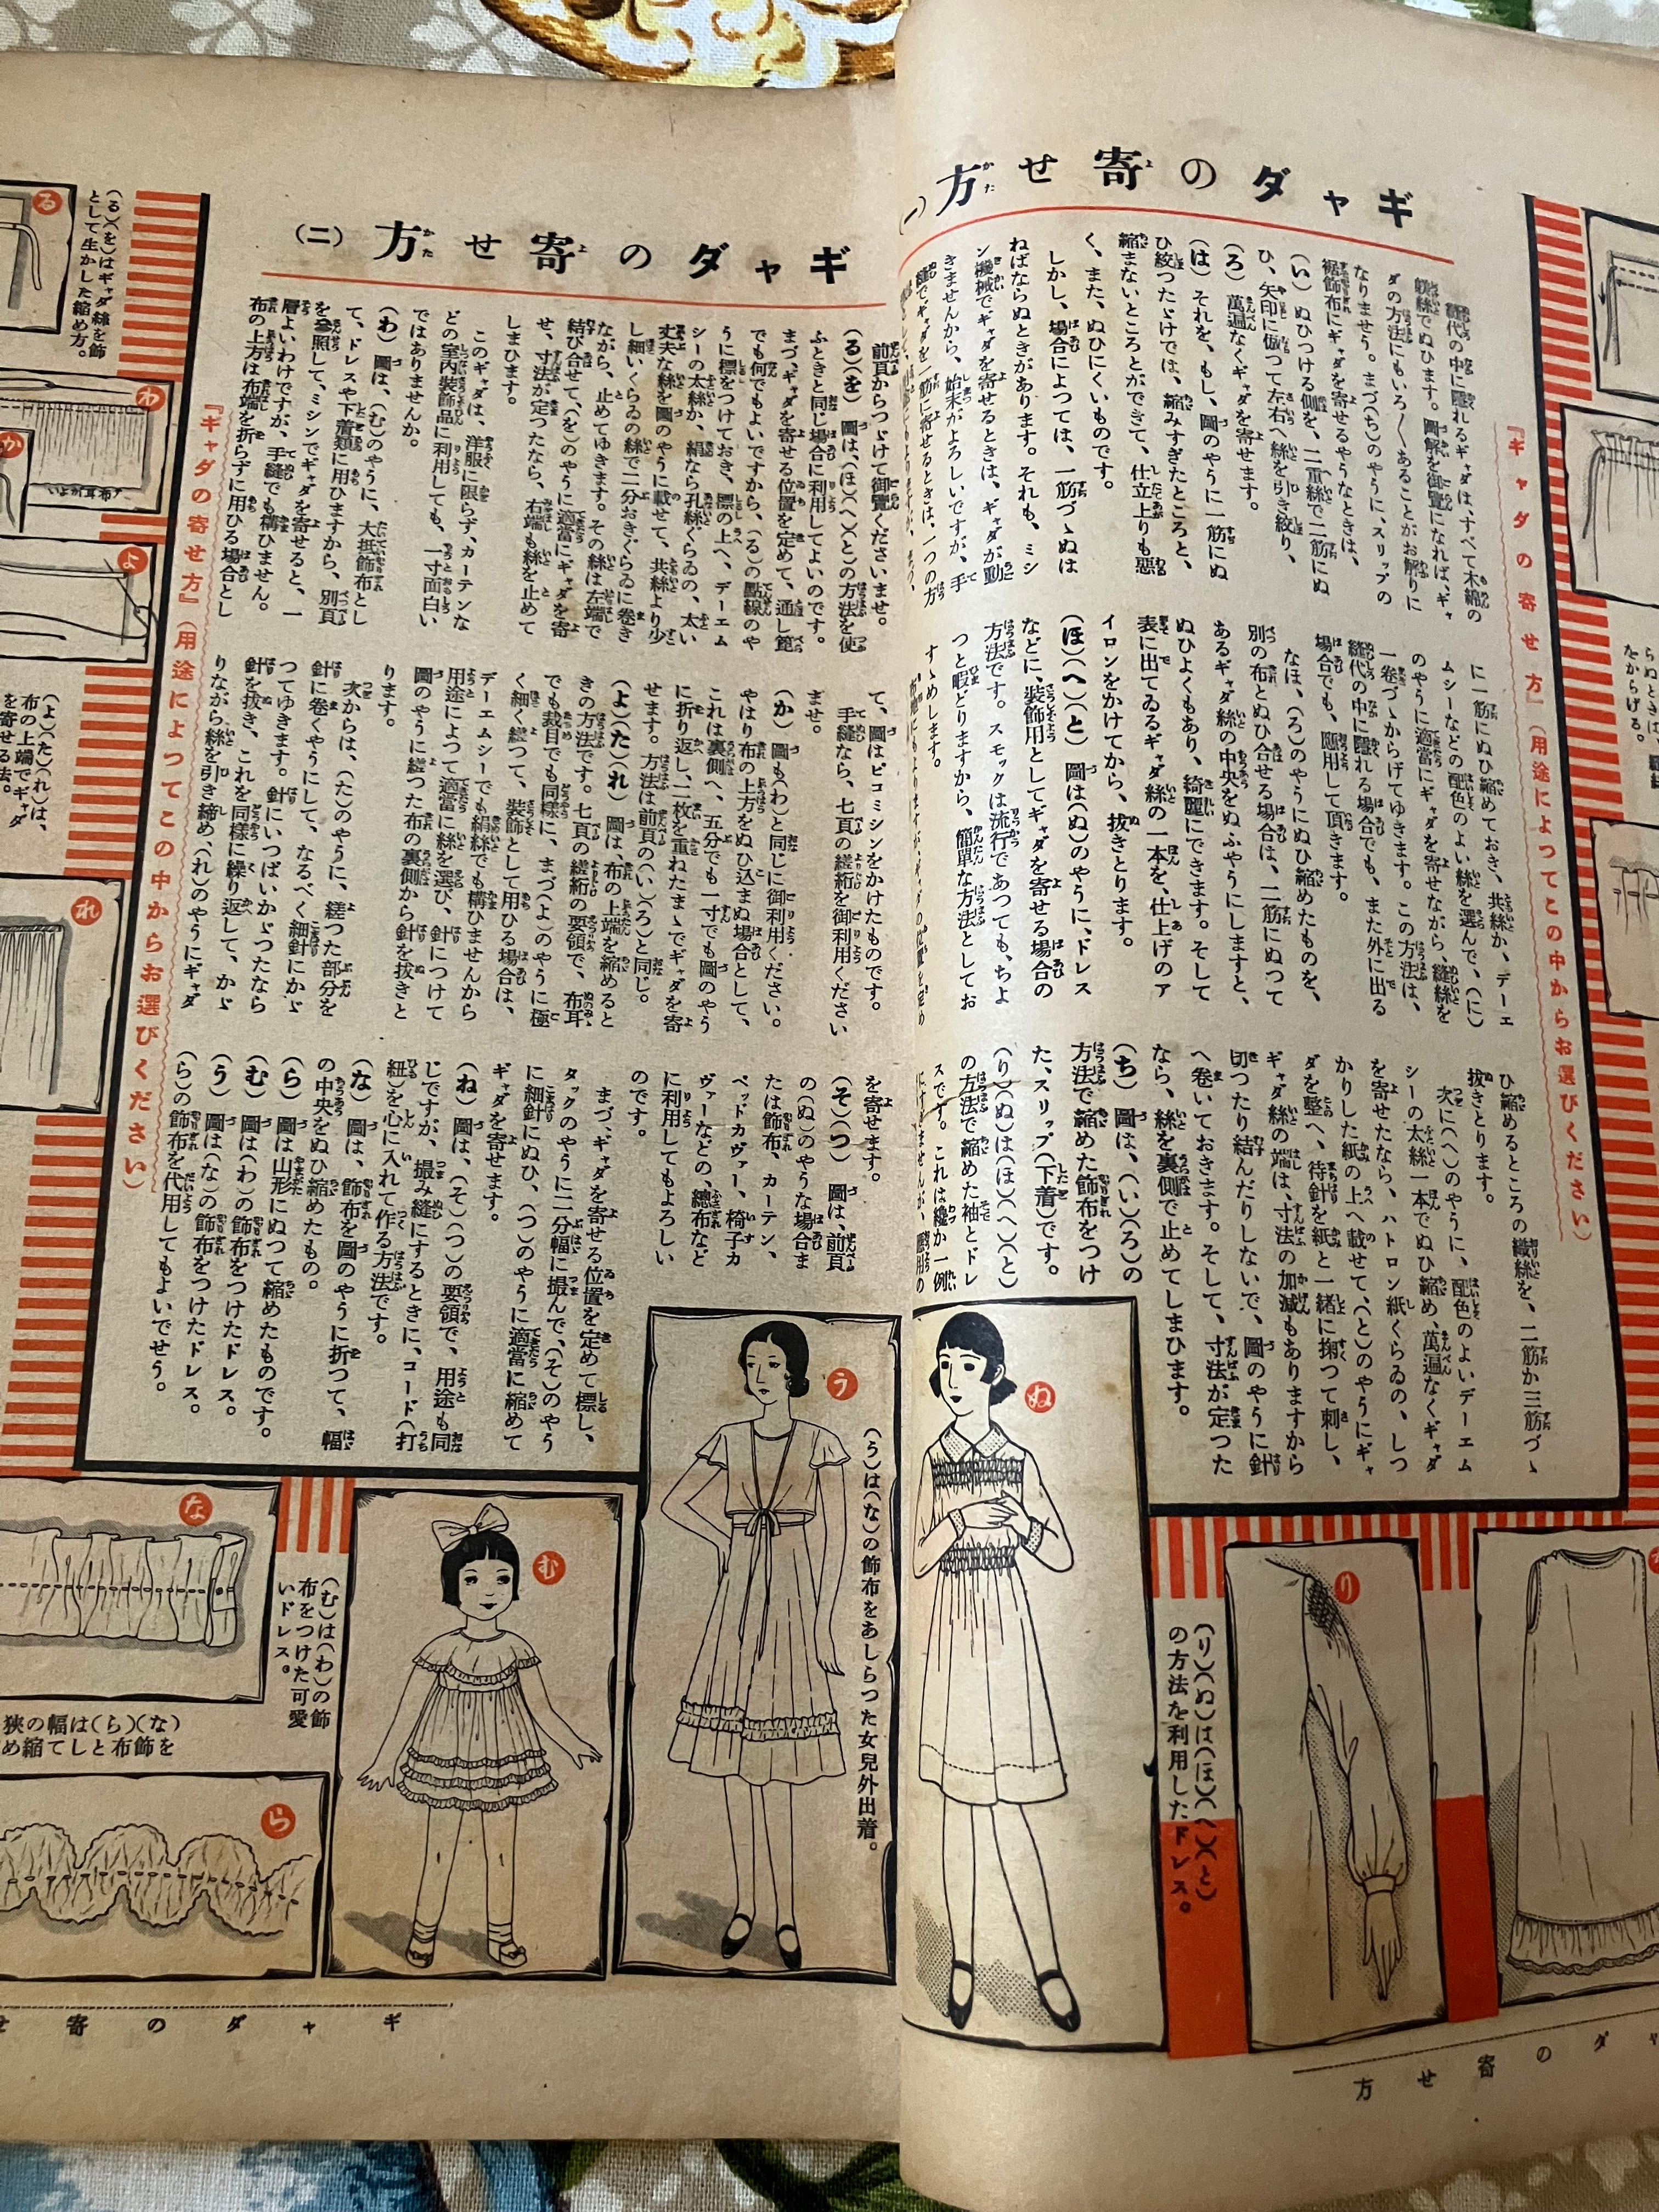 ギャダの寄せ方(一)
『ギャダの寄せ方』(用途によつてこの中からお選びください)
縫代の中に隠れるギャダは、すべて木綿の
躾絲でぬひます。圖解を御覽になれば、ギャ
ダの方法にもいろ〱あることがお解りに
なりませう。まづ(ち)のやうに、スリップの
裾飾布にギャダを寄せるやうなときは、
(い) ぬひつける側を、二重絲で二筋にぬ
ひ、矢印に倣つて左右へ絲を引き絞り、
(ろ) 萬遍なくギャダを寄せます。
(は) それを、もし、圖のやうに一筋にぬ
ひ絞つたゞけでは、縮みすぎたところと、
縮まないところとができて、仕立上りも惡
く、また、ぬひにくいものです。
しかし、場合によつては、一筋づゝぬは
ねばならぬときがあります。それも、ミシ
ン機械でギャダを寄せるときは、ギャダが動
きませんから、始末がよろしいですが、手
縫でギャダを一筋に寄せるときは、一つの方
に一筋にぬひ縮めておき、共絲か、デーエ
ムシーなどの配色のよい絲を選んで、(に)
のやうに適當にギャダを寄せながら、縫絲を
一卷づゝからげてゆきます。この方法は、
縫代の中に隠れる場合でも、また外に出る
場合でも、應用して頂きます。
なほ、(ろ)のやうにぬひ縮めたものを、
別の布とぬひ合せる場合は、二筋にぬつて
あるギャダ絲の中央をぬふやうにしますと、
ぬひよくもあり、綺麗にできます。そして
表に出てゐるギャダ絲の一本を、仕上げのア
イロンをかけてから、抜きとります。
(ほ)(へ)(と) 圖は(ぬ)のやうに、ドレス
などに、裝飾用としてギャダを寄せる場合の
方法です。スモックは流行であつても、ちよ
つと暇どりますから、簡單な方法としてお
すゝめします。
ひ縮めるところの織絲を、二筋か三筋づゝ
抜きとります。
次に(へ)のやうに、配色のよいデーエム
シーの太絲一本でぬひ縮め、萬遍なくギャダ
を寄せたなら、ハトロン紙くらゐの、しつ
かりした紙の上へ載せて、(と)のやうにギャ
ダを整へ、待針を紙と一緒に掬つて刺し、
ギャダ絲の端は、寸法の加減もありますから
切つたり結んだりしないで、圖のやうに針
へ卷いておきます。そして、寸法が定つた
なら、絲を裏側で止めてしまひます。
(ち) 圖は、(い)(ろ)の
方法で縮めた飾布をつけ
た、スリップ(下着)です。
(り)(ぬ)は(ほ)(へ)(と)
の方法で縮めた袖とドレ
スです。これは纔か一例
ぬ
り
(り)(ぬ)は(ほ)(へ)(と)
の方法を利用したドレス。
ギャダの寄せ方(二)
前頁からつゞけて御覽くださいませ。
(る)(を) 圖は、(ほ)(へ)(と)の方法を使
ふときと同じ場合に利用してよいのです。
まづ、ギャダを寄せる位置を定めて、通し箆
でも何でもよいですから、(る)の點線のや
うに標をつけておき、標の上へ、デーエム
シーの太絲か、絹なら孔絲ぐらゐの、太い
丈夫な絲を圖のやうに載せて、共絲より少
し細いくらゐの絲で二分おきぐらゐに卷き
ながら、止めてゆきます。その絲は左端で
結び合せて、(を)のやうに適當にギャダを寄
せ、寸法が定つたなら、右端も絲を止めて
しまひます。
このギャダは、洋服に限らず、カーテンな
どの室内裝飾品に利用しても、一寸面白い
ではありませんか。
(わ) 圖は、(む)のやうに、大抵飾布とし
て、ドレスや下着類に用ひますから、別頁
を參照して、ミシンでギャダを寄せると、一
層よいわけですが、手縫でも構ひません。
布の上方は布端を折らずに用ひる場合とし
て、圖はピコミシンをかけたものです。
手縫なら、七頁の縒絎を御利用ください
ませ。
(か) 圖も(わ)と同じに御利用ください。
やはり布の上方をぬひ込まぬ場合として、
これは裏側へ、五分でも一寸でも圖のやう
に折り返し、二枚を重ねたまゝでギャダを寄
せます。方法は前頁の(い)(ろ)と同じ。
(よ)(た)(れ) 圖は、布の上端を縮めると
きの方法です。七頁の縒絎の要領で、布耳
でも裁目でも同樣に、まづ(よ)のやうに極
く細く縒つて、裝飾として用ひる場合は、
デーエムシーでも絹絲でも構ひませんから
用途によつて適當に絲を選び、針につけて
圖のやうに縒つた布の裏側から針を抜きと
ります。
次からは、(た)のやうに、縒つた部分を
針に卷くやうにして、なるべく細針にかゞ
つてゆきます。針にいつぱいかゞつたなら
針を抜き、これを同樣に繰り返して、かゞ
りながら絲を引き締め、(れ)のやうにギャダ
を寄せます。
(そ)(つ) 圖は、前頁
の(ぬ)のやうな場合ま
たは飾布、カーテン、
ベッドカヴァー、椅子カ
ヴァーなどの、總布など
に利用してもよろしい
のです。
まづ、ギャダを寄せる位置を定めて標し、
タックのやうに二分幅に撮んで、(そ)のやう
に細針にぬひ、(つ)のやうに適當に縮めて
ギャダを寄せます。
(ね) 圖は、(そ)(つ)の要領で、用途も同
じですが、撮み縫にするときに、コード(打
紐)を心に入れて作る方法です。
(な) 圖は、飾布を圖のやうに折つて、幅
の中央をぬひ縮めたもの。
(ら) 圖は山形にぬつて縮めたものです。
(む) 圖は(わ)の飾布をつけたドレス。
(う) 圖は(な)の飾布をつけたドレス。
(ら)の飾布を代用してもよいでせう。
『ギャダの寄せ方』(用途によつてこの中からお選びください)
う
(う)は(な)の飾布をあしらつた女兒外出着。
む
(む)は(わ)の飾
布をつけた可愛
いドレス。
る
(る)(を)はギャダ絲を飾
として生かした縮め方。
わ
か
よ
(よ)(た)(れ)は、
布の上端でギャダ
を寄せる法。
れ
な
(な)(ら)は幅の狹
を飾布としてて縮め
ら
ギャダの寄せ
ダの寄せ方